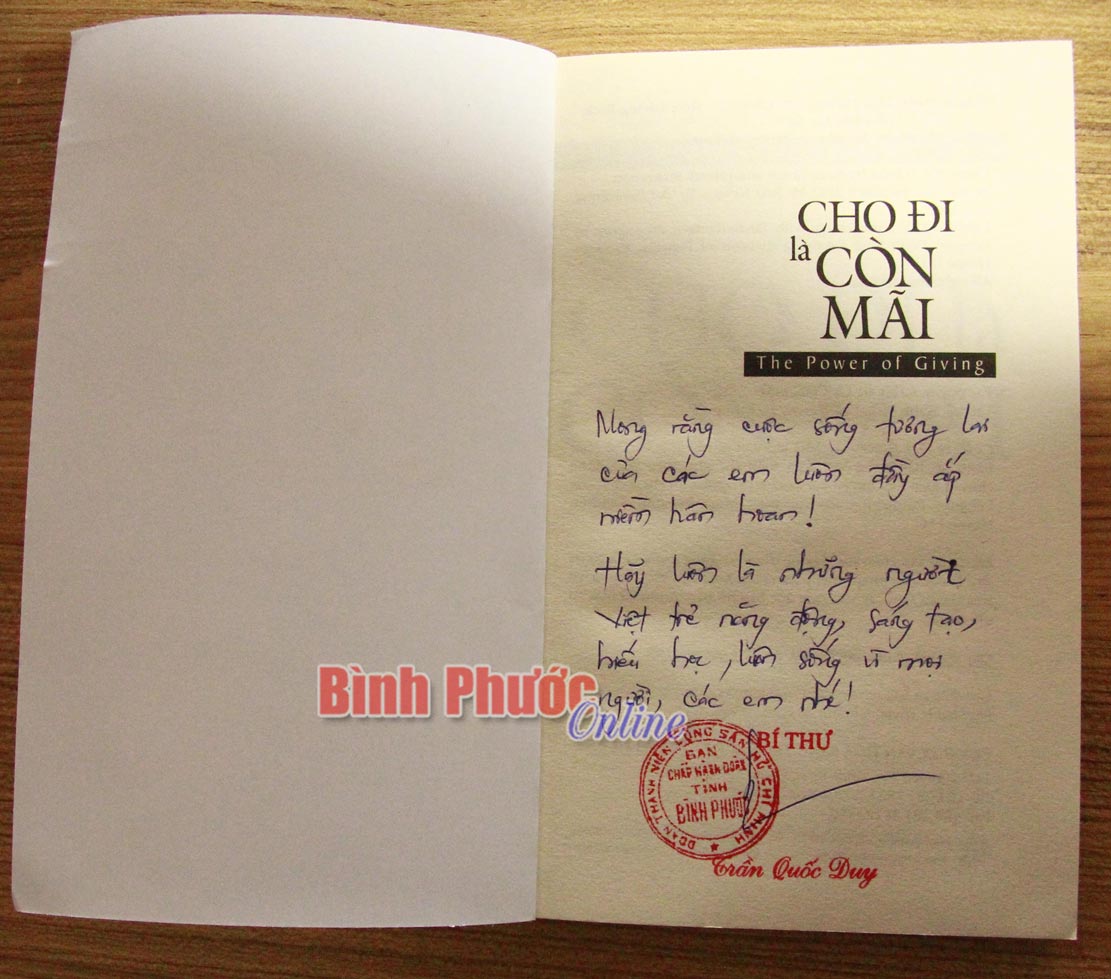 CHO ĐI
là CÒN
MÃI
The Power of Giving
Mong rằng cuộc sống tương lai
của các em luôn đầy ắp
niềm hân hoan!
Hãy luôn là những người
Việt trẻ năng động, sáng tạo,
hiếu học, luôn sống vì mọi
người, các em nhé!
Bình Phước
Online
BÍ THƯ
ĐOÀN THANH NIÊN CỘNG SẢN HỒ CHÍ MINH
BAN
CHẤP HÀNH ĐOÀN
TỈNH
BÌNH PHƯỚC
Trần Quốc Duy